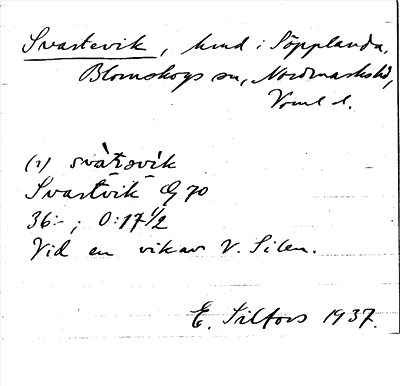 Svartevik, hmd i Söpplanda,
Blomskogs sn, Nordmarks hd,
Vrml l.
(1) svàt̯əvik
Svartvik Gg 70
36:- ; 0:17 1/2
Vid en vik av V. Silen.
E. Silfors 1937.